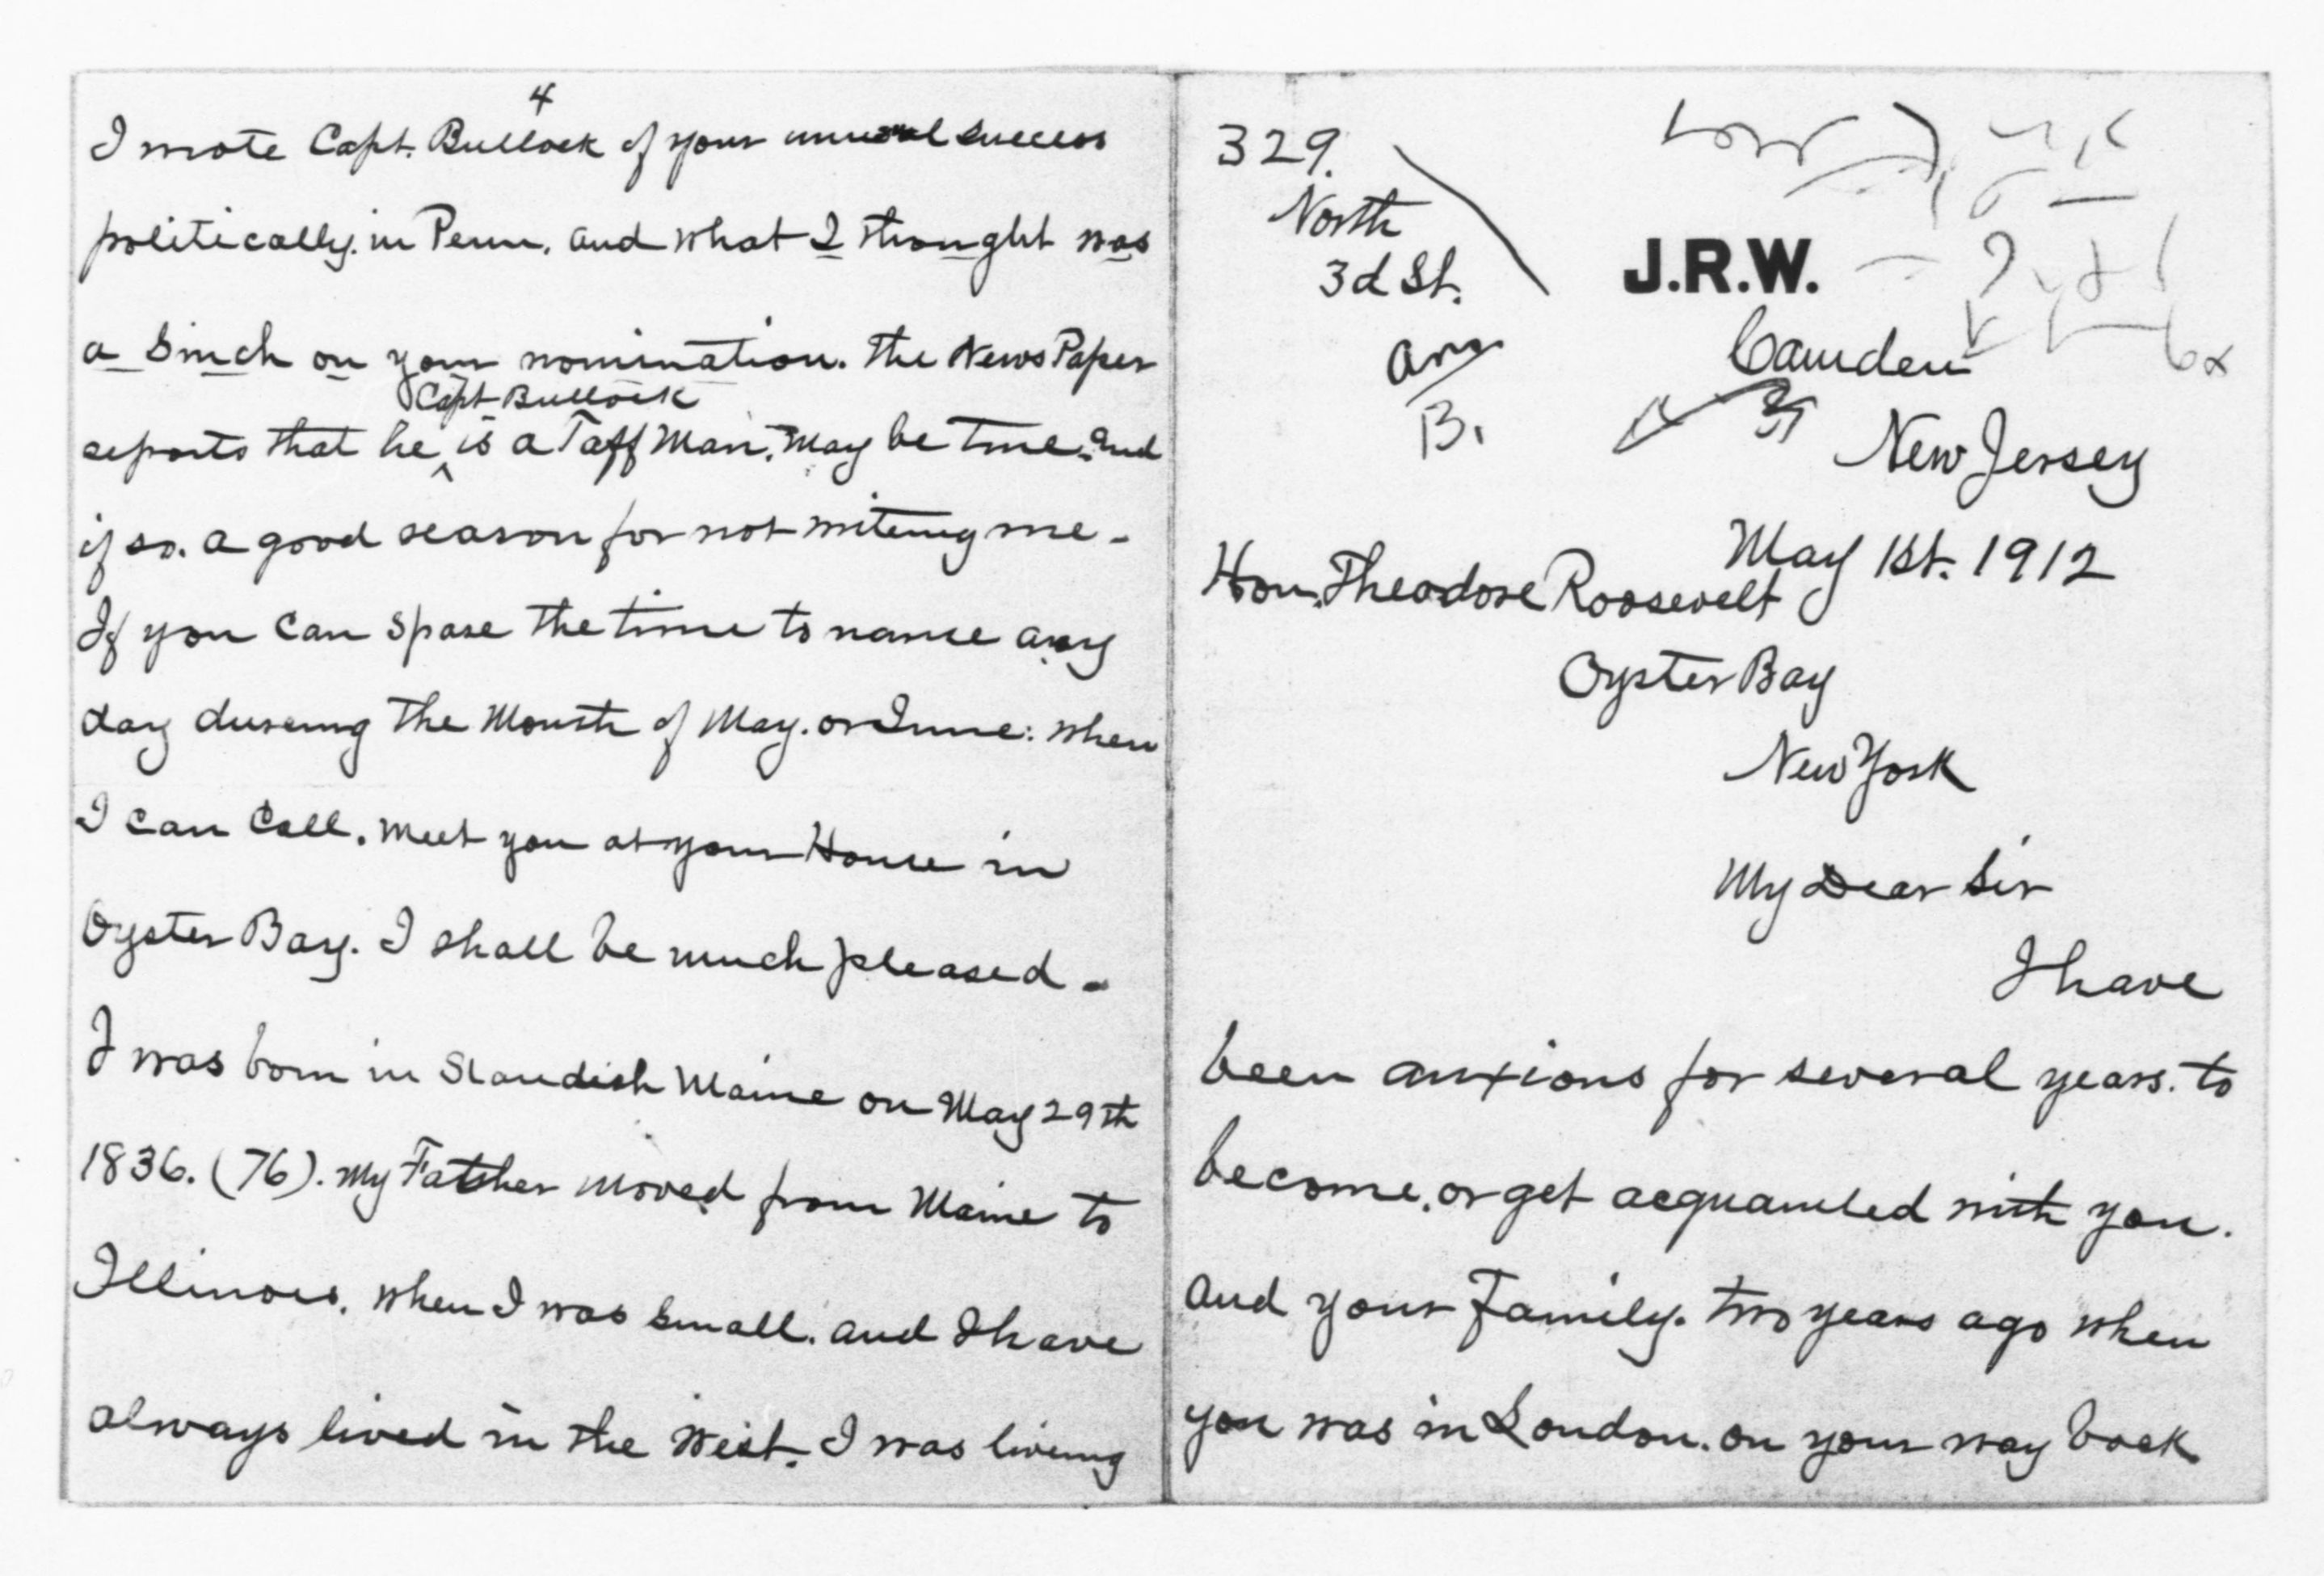 4
I wrote Capt. Bullock of your unusual success
politically. in Penn. and what I thought was
a Sinch on your nomination. The News Paper
Capt Bullock
reports that he is a Taff Man. May be true. and
if so. a good reason for not writeing me -
If you can spare the time to name any
day dureing the Month of May. or June: when
I can Call. meet you at your House in
Oyster Bay. I shall be much pleased -
I was born in Standish Maine on May 29th
1836. (76). My Father moved from Maine to
Illinois. when I was small. and I have
always lived in the West. I was liveing
329.
North
3d St.
J.R.W.
Camden
New Jersey
Ans
B.
May 1st. 1912
Hon. Theodore Roosevelt
Oyster Bay
New York
My Dear Sir
I have
been anxious for several years. to
become. or get acquainted with you.
and your Family. two years ago when
you was in London. on your way back